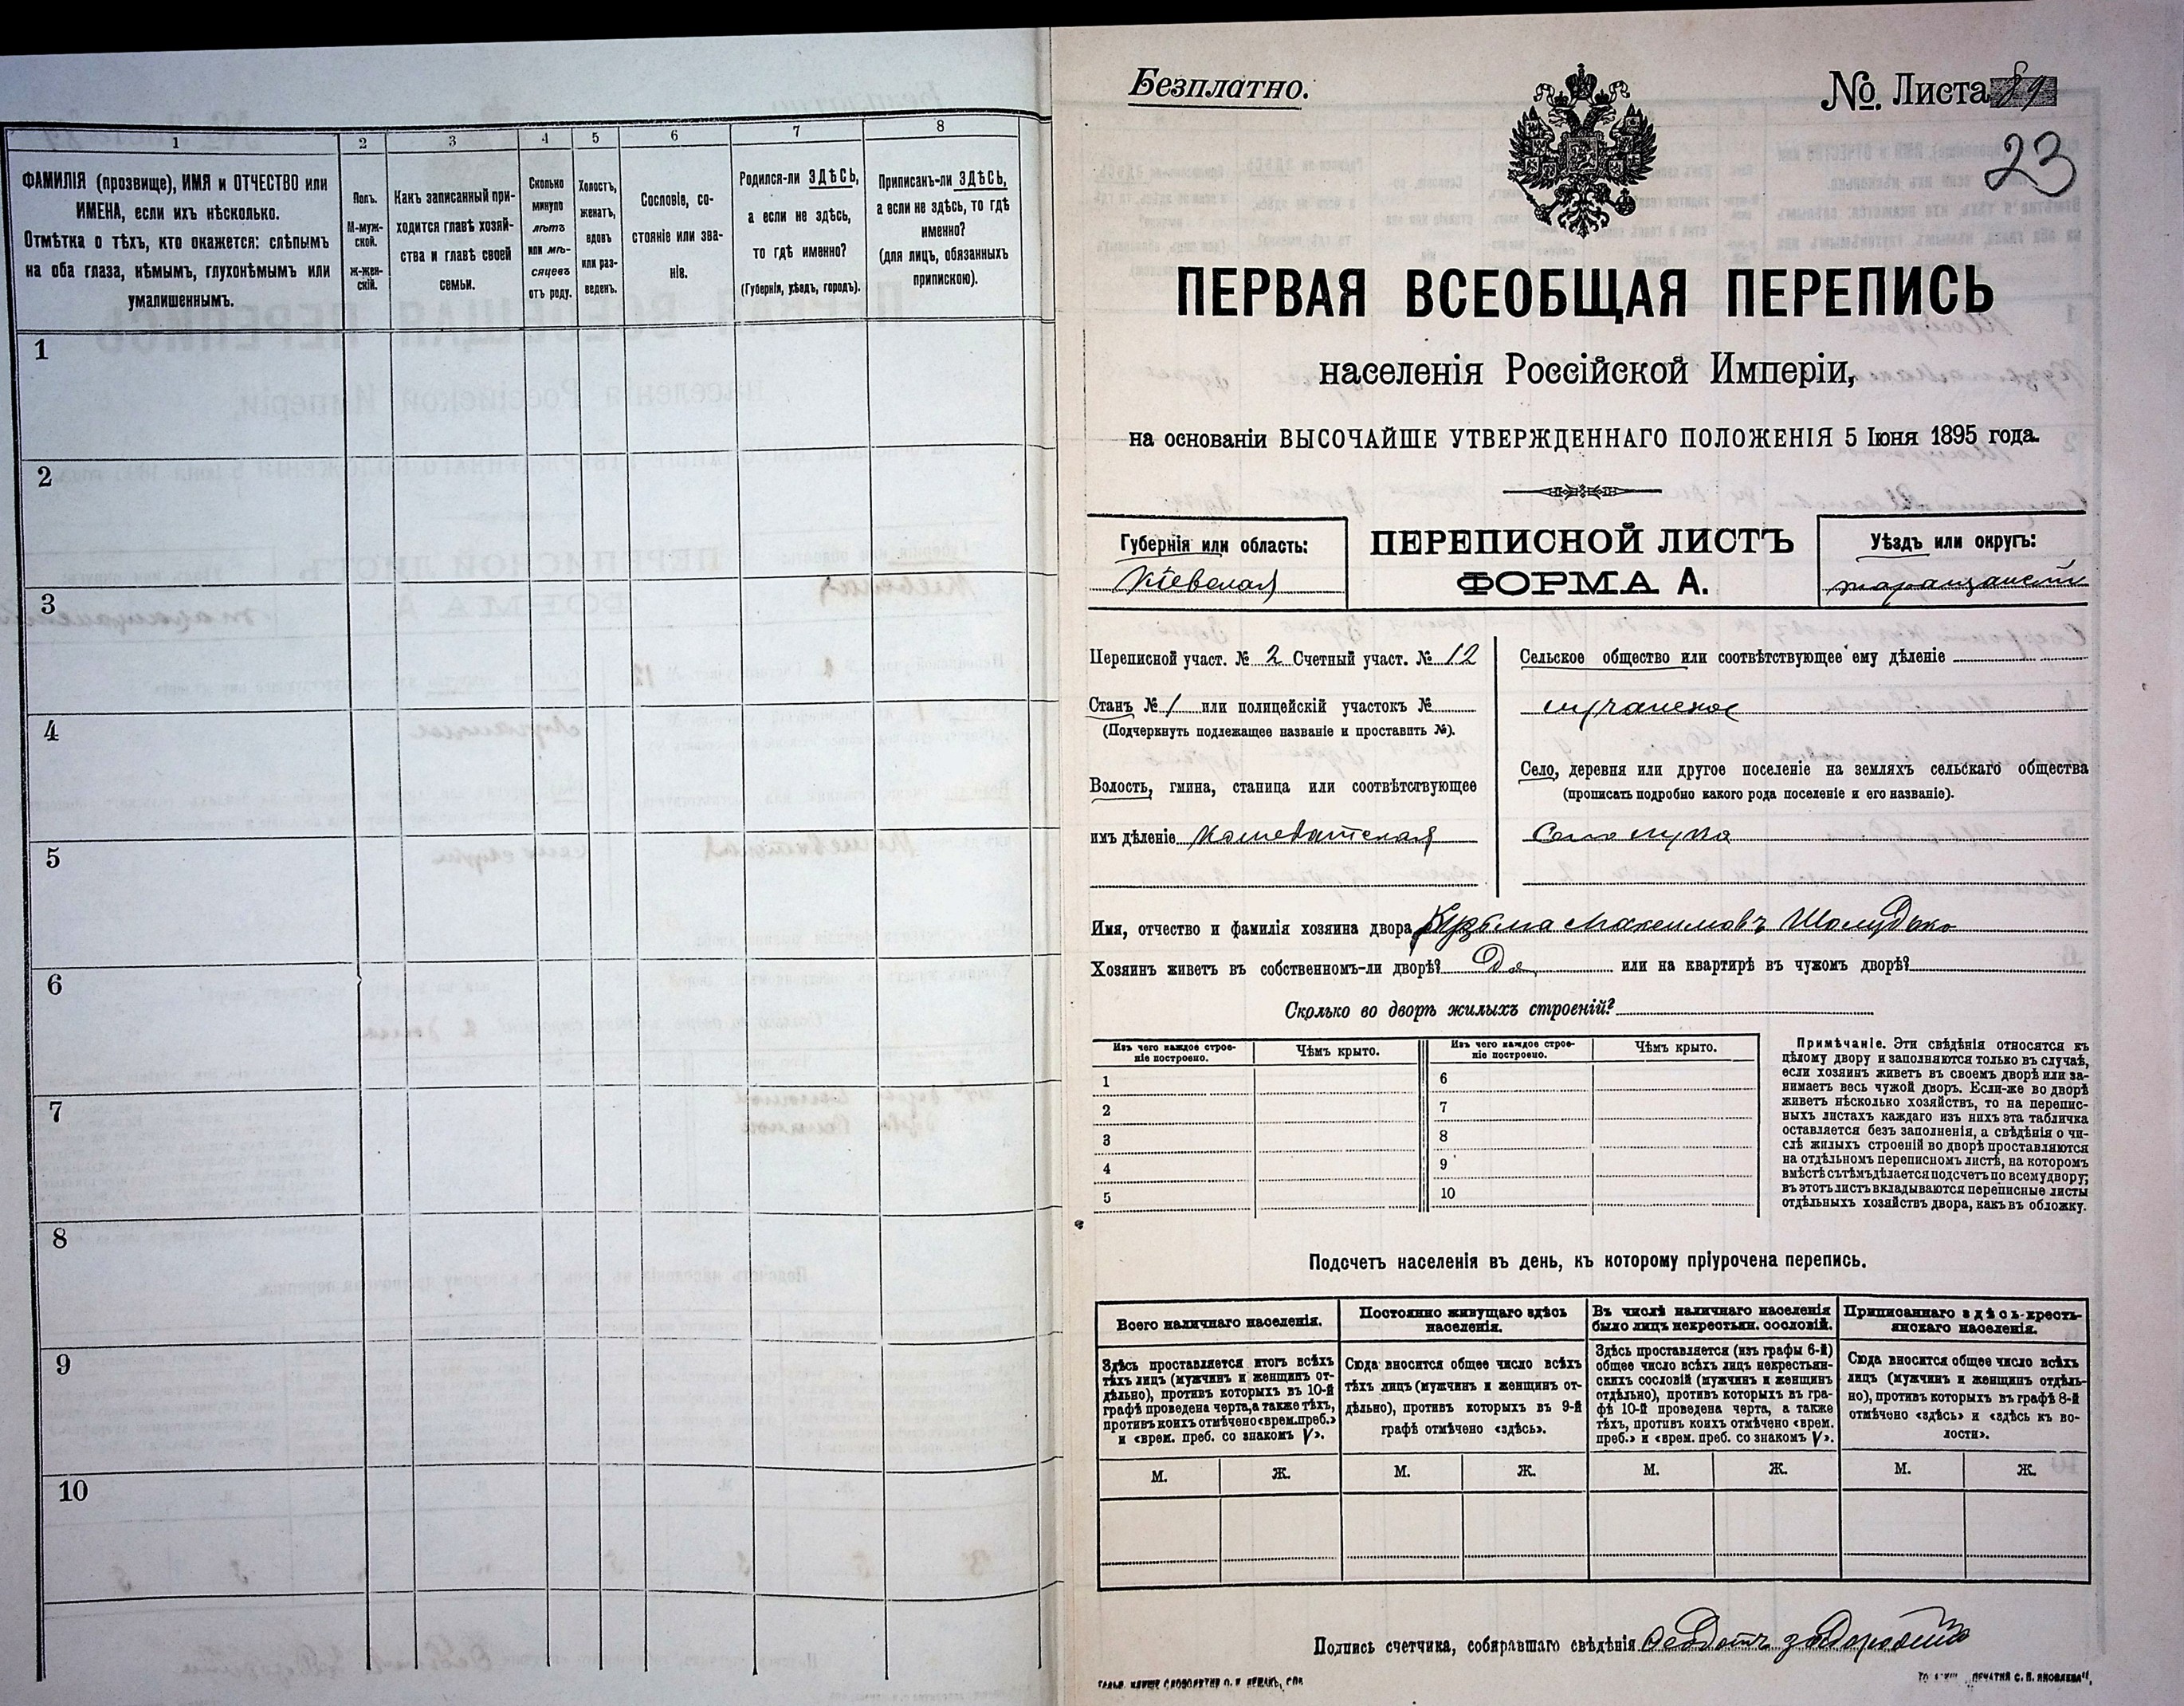 1
2
3
4
5
6
7
8
ФАМИЛІЯ (прозвище), ИМЯ и ОТЧЕСТВО или
ИМЕНА, если ихъ нѣсколько.
Отмѣтка о тѣхъ, кто окажется: слѣпымъ
на оба глаза, нѣмымъ, глухонѣмымъ или
умалишеннымъ.
Полъ.
М-муж-
ской.
ж-жен-
скій.
Какъ записанный при-
ходится главѣ хозяй-
ства и главѣ своей
семьи.
Сколько
минуло
лѣтъ
или мѣ-
сяцевъ
отъ роду.
Холостъ,
женатъ,
вдовъ
или раз-
веденъ.
Сословіе, со-
стояніе или зва-
ніе.
Родился-ли ЗДѢСЬ,
а если не здѣсь,
то гдѣ именно?
(Губернія, уѣздъ, городъ).
Приписанъ-ли ЗДѢСЬ,
а если не здѣсь, то гдѣ
именно?
(для лицъ, обязанныхъ
припискою).
1
2
3
4
5
6
7
8
9
10
Безплатно.
№ Листа 89
23
ПЕРВАЯ ВСЕОБЩАЯ ПЕРЕПИСЬ
населенія Россійской Имперіи,
на основаніи ВЫСОЧАЙШЕ УТВЕРЖДЕННАГО ПОЛОЖЕНІЯ 5 Іюня 1895 года.
Губернія или область:
Кіевская
ПЕРЕПИСНОЙ ЛИСТЪ
ФОРМА А.
Уѣздъ или округъ:
таращанскій
Переписной участ. № 2 Счетный участ. № 12
Станъ № 1 или полицейскій участокъ №
(Подчеркнуть подлежащее названіе и проставить №).
Волость, гмина, станица или соотвѣтствующее
имъ дѣленіе Кошеватская
Сельское общество или соотвѣтствующее ему дѣленіе
лучанское
Село, деревня или другое поселеніе на земляхъ сельскаго общества
(прописать подробно какого рода поселеніе и его названіе).
Село лука
Имя, отчество и фамилія хозяина двора Кузьма Максимовъ Шолудько
Хозяинъ живетъ въ собственномъ-ли дворѣ? Да или на квартирѣ въ чужомъ дворѣ?
Сколько во дворѣ жилыхъ строеній?
Изъ чего каждое строе-
ніе построено.
Чѣмъ крыто.
Изъ чего каждое строе-
ніе построено.
Чѣмъ крыто.
1
2
3
4
5
6
7
8
9
10
Примѣчаніе. Эти свѣдѣнія относятся къ
цѣлому двору и заполняются только въ случаѣ,
если хозяинъ живетъ въ своемъ дворѣ или за-
нимаетъ весь чужой дворъ. Если-же во дворѣ
живетъ нѣсколько хозяйствъ, то на перепис-
ныхъ листахъ каждаго изъ нихъ эта табличка
оставляется безъ заполненія, а свѣдѣнія о чи-
слѣ жилыхъ строеній во дворѣ проставляются
на отдѣльномъ переписномъ листѣ, на которомъ
вмѣстѣ съ тѣмъ дѣлается подсчетъ по всему двору;
въ этотъ листъ вкладываются переписные листы
отдѣльныхъ хозяйствъ двора, какъ въ обложку.
Подсчетъ населенія въ день, къ которому пріурочена перепись.
Всего наличнаго населенія.
Постоянно живущаго здѣсь
населенія.
Въ числѣ наличнаго населенія
было лицъ некрестьян. сословій.
Приписаннаго здѣсь-кресть-
янскаго населенія.
Здѣсь проставляется итогъ всѣхъ
тѣхъ лицъ (мужчинъ и женщинъ от-
дѣльно), противъ которыхъ въ 10-й
графѣ проведена черта, а также тѣхъ,
противъ коихъ отмѣчено «врем. преб.»
и «врем. преб. со знакомъ V».
Сюда вносится общее число всѣхъ
тѣхъ лицъ (мужчинъ и женщинъ от-
дѣльно), противъ которыхъ въ 9-й
графѣ отмѣчено «здѣсь».
Здѣсь проставляется (изъ графы 6-й)
общее число всѣхъ лицъ некрестьян-
скихъ сословій (мужчинъ и женщинъ
отдѣльно), противъ которыхъ въ гра-
фѣ 10-й проведена черта, а также
тѣхъ, противъ коихъ отмѣчено «врем.
преб.» и «врем. преб. со знакомъ V».
Сюда вносится общее число всѣхъ
лицъ (мужчинъ и женщинъ отдѣль-
но), противъ которыхъ въ графѣ 8-й
отмѣчено «здѣсь» и «здѣсь къ во-
лости».
М.
Ж.
М.
Ж.
М.
Ж.
М.
Ж.
Подпись счетчика, собиравшаго свѣдѣнія
С. П. ЯКОВЛЕВА